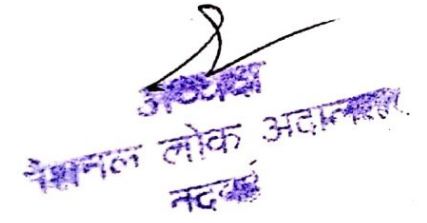 अध्यक्ष
नैशनल लोक अदालत
नदबई